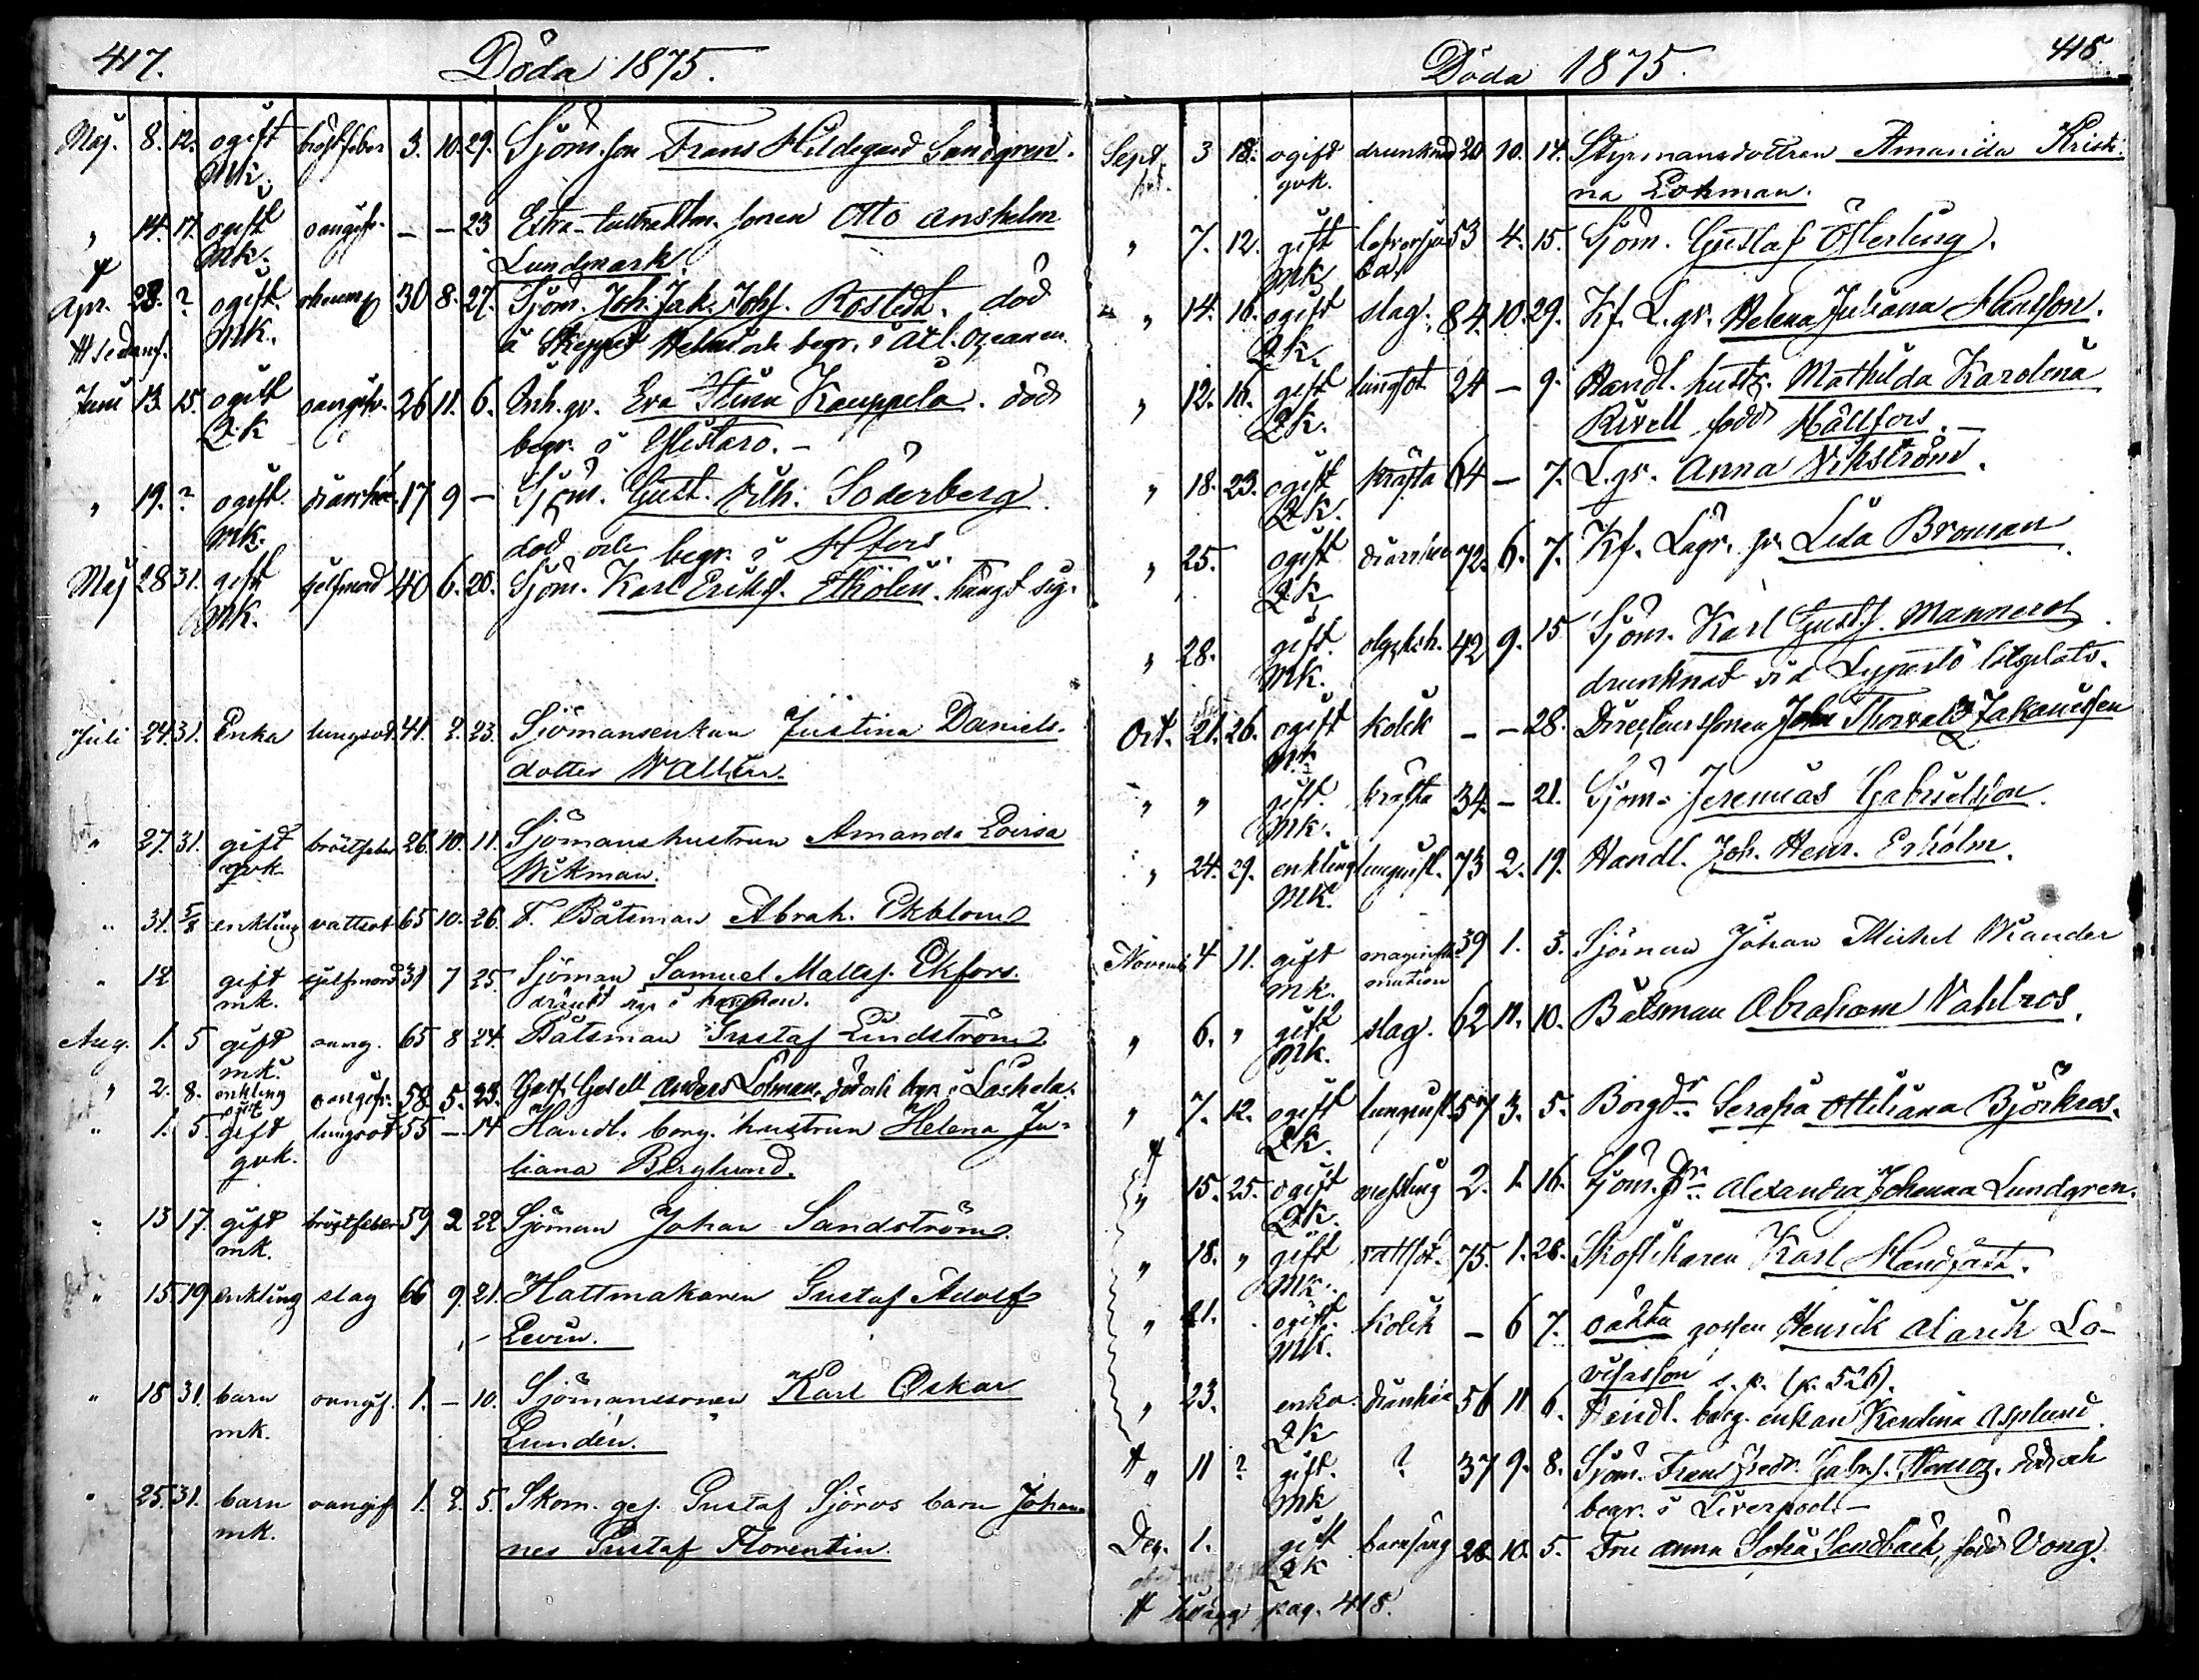 417.
Döda 1875.
Maj. 8. 12. ogift bröstfeber 3. 10. 29. Sjöm. son Frans Hildegard Sandgren.
Mk.
" 14. 17. ogift oangifv. — — 23 Extra- sonen Otto Anshelm
Mk. Lundmark.
Apr. 28. ? ogift 30 8. 27. Sjöm. Joh. Jak. Johs. Rostedt. död
Mk. å Skeppet och begr. i Atl. Oceanen.
Juni 13. 15. ogift oangifv. 26 11. 6. Inh. gr. Eva Stina Kauppela. död
Qk begr. i Ylistaro. –
" 19. ? ogift diarrhé 17 9 – Sjöm. Gust. Vilh. Söderberg
Mk. död och begr. i Hfors.
Maj 28 31. gift sjelfmord 40 6. 20. Sjöm. Karl Eriks. Etholén. hängt sig.
Mk.
Juli 24. 31. Enka lungsot. 41. 2. 23. Sjömansenkan Justina Daniels-
dotter Wallin.
" 27. 31. gift bröstfeber 26. 10. 11. Sjömanshustrun Amanda Lovisa
qvk. Wikman.
" 31. 5/8 enkling vattsot 65 10. 26. F. Båtsman Abrah. Ekblom
" 12 gift sjelfmord 31 7 25. Sjöman Samuel Matts. Ekfors.
mk. dränkt sig i hamnen.
Aug. 1. 5 gift oang. 65 8 24. Båtsman Gustaf Lindström
mk.
" 2. 8. enkling oangifv. 58. 5. 23. Garf. Gesell Anders Lohman, död och begr. i Laihela.
" 1. 5. gift lungsot 55 – 14 Handl. borg. hustrun Helena Ju-
qvk. liana Berglund.
" 13 17. gift bröstfeber 59 2 22 Sjöman Johan Sandström
mk.
" 15 19 enkling slag 66 9. 21. Hattmakaren Gustaf Adolf
Levin.
" 18 31. barn oangif. 1. – 10. Sjömanssonen Karl Oskar
mk. Lundén.
" 25. 31. barn oangif 1. 2. 5. Skom. ges. Gustaf Sjöros barn Johan-
mk. nes Gustaf Florentin
418.
Döda 1875.
Sept. 3 18. ogift drunknad 20 10. 14. Styrmansdottren Amanda Kristi-
qvk. na Lohman.
" 7. 12. gift 53 4. 15. Sjöm. Gustaf Österling.
Mk
" 14. 16. ogift slag. 84. 10. 29. Kf. L. gr. Helena Juliana Hansson.
Qk.
" 12. 16. gift lungsot 24 – 9. Handl. hustr. Mathilda Karolina
Qk. Rivell född Hällfors. –
" 18. 23. ogift kräfta 64 – 7. L. gr. Anna Wikström.
Qk.
" 25. ogift diarrhee 72. 6. 7. Kf. Lagr. gr. Lisa Broman
Qk
" 28. gift. olycksh. 42 9. 15 Sjöm. Karl Gustf. Manneros
Mk. drunknat vid Lypertö lotsplats.
Oct. 21. 26. ogift kolik – – 28. Directeurssonen John Thorvald Jakaneisen
Mk
" " gift. kräfta 34. – 21. Sjöm. Jeremias Gabrielsson.
Mk.
" 24. 29. enkling lunginfl. 73 2. 19. Handl. Joh. Henr. Erholm.
Mk.
Novemb. 4 11. gift maginfla- 39 1. 3. Sjöman Johan Mickel Wiander
mk. mation
" 6. " gift slag. 62 11. 10. Båtsman Abraham Wahlros.
Mk.
" 7. 12. ogift lunginfl. 57 3. 5. Borgdr. Serafia Ottiliana Björkros.
Qk.
" 15. 25. ogift messling 2. 1. 16. Sjöm. dr. Alexandra Johanna Lundgren.
Qk.
" 18. " gift vattsot. 75. 1. 28. Skoflikaren Karl Handfast.
Mk.
" 21. ogift. kolik – 6 7. oäkta gossen Henrik Alarik Lo-
Mk. visasson s. p. (p. 526).
" 23. enka diarrhée 56 11 6. Handl. borg. enkan Karolina Asplund.
Qk
" 11 ? gift. ? 37 9. 8. Sjöm. Frans Fredr. Gabrs. död och
Mk begr. i Liverpool –
Dec. 1. gift barnsäng 28. 10. 5. Fru Anna Sofia Sandbäck, född Vong.
Qk
pag. 418.